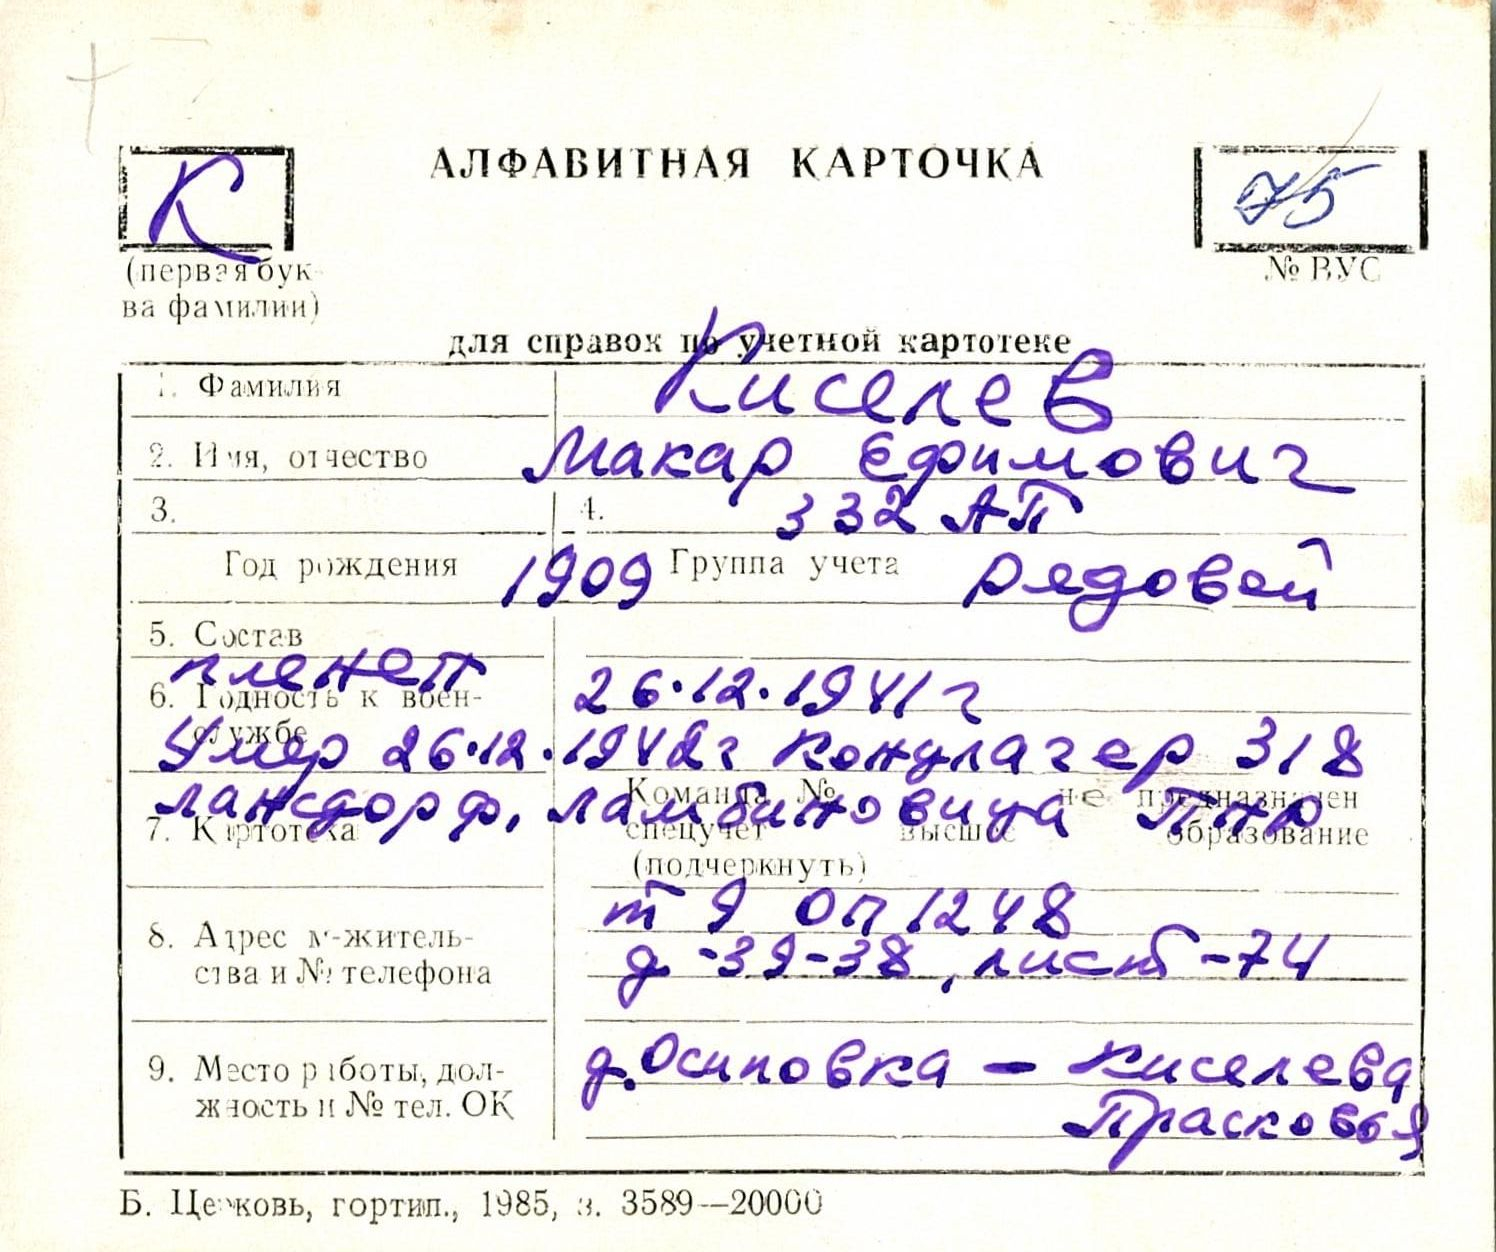 К
АЛФАВИТНАЯ КАРТОЧКА
75
(первая бук-
ва фамилии)
№ ВУС
для справок по учетной картотеке
1. Фамилия Киселев
2. Имя, отчество Макар Ефимович
3. 4. 332 АП
Год рождения 1909 Группа учета рядовой
5. Состав
пленен 26.12.1941 г
6. Годность к воен-
службе
Умер 26.12.1942г Концлагер 318
лансдорф, ламбиновица ПНР
Команда № не предназначен
7. Картотека спецучет высшее образование
(подчеркнуть)
т 9 оп 1248
8. Адрес м-житель-
ства и № телефона
д-39-38, лист-74
9. Место работы, дол-
жность и № тел. ОК
д. Осиповка - Киселева
Прасковья
Б. Церковь, гортип., 1985, з. 3589—20000